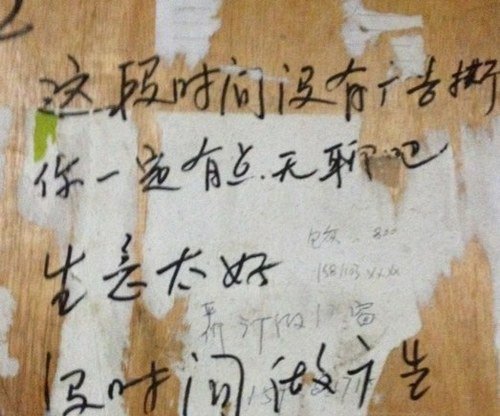 这段时间没有广告撕
你一定有点无聊吧
生意太好
没时间做广告